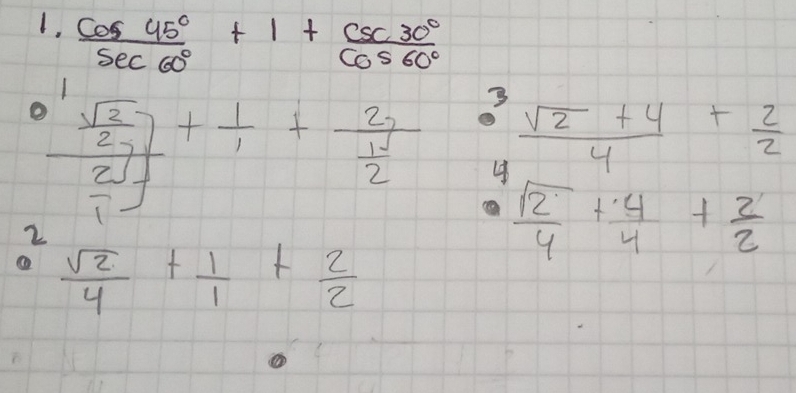 1. cos 45° / sec 60° + 1 + csc 30° / cos 60°
1 (√2/2) / (2/1) + 1/1 + 2 / (1/2)
2 √2/4 + 1/1 + 2/2
3 (√2 + 4) / 4 + 2/2
4 √2/4 + 4/4 + 2/2